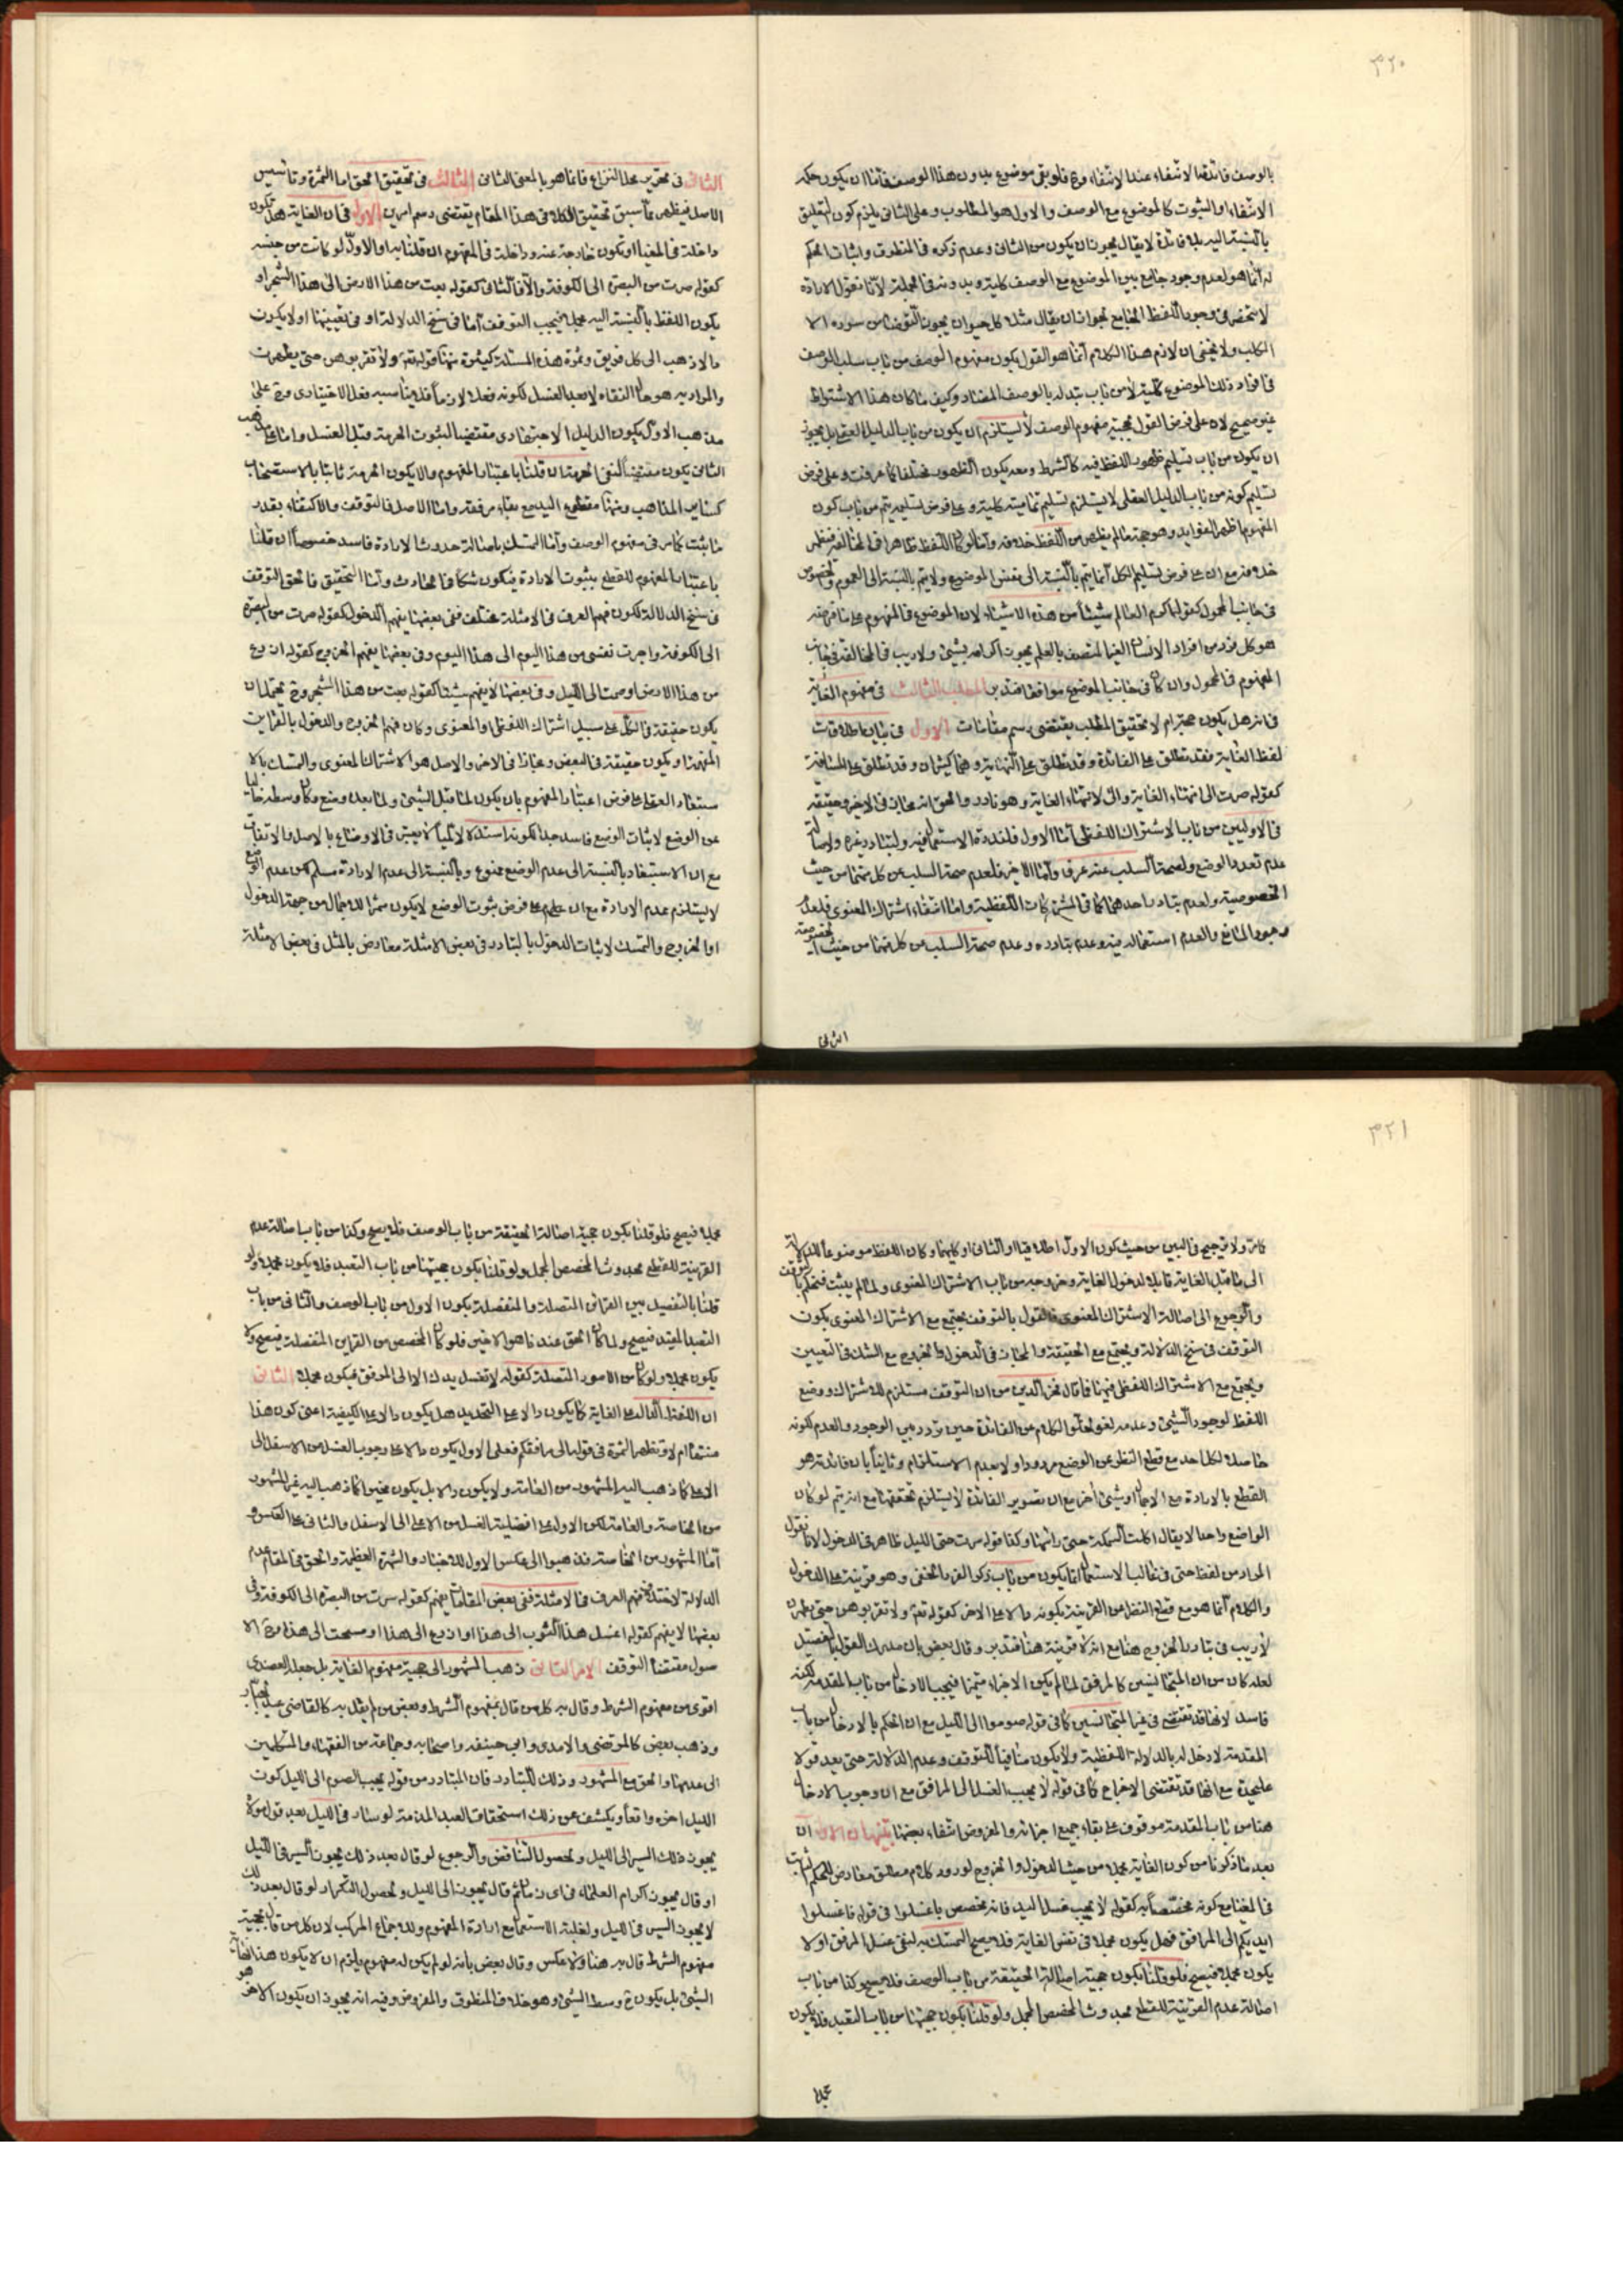 ٣٢٠
بالوصف فائدتها الانتفاء عند الانتفاء وح فلو بقى موضوع بدون هذا الوصف فاما ان يكون حكمه
الانتفاء او الثبوت كالموضوع مع الوصف والاول هو المطلوب وعلى الثانى يلزم كون التعليق
بالنسبة اليه بلا فائدة لا يقال يجوز ان يكون من الثانى وعدم ذكره فى المنطوق واثبات الحكم
له انما هو لعدم وجود جامع بين الموضوع مع الوصف كلية وبدونه فى الجملة لانا نقول الارادة
لا تنحصر فى وجود اللفظ الجامع لجواز ان يقال مثلا كل حيوان يجوز التوضأ من سوره الا
الكلب ولا يخفى ان لازم هذا الكلام انما هو القول بكون مفهوم الوصف من باب سلب الوصف
فى افراد ذلك الموضوع كلية لا من باب تبدله بالوصف المضاد وكيف ما كان هذا الاشتراط
غير صحيح لانه على فرض القول بحجية مفهوم الوصف لا يستلزم ان يكون من باب الدليل العقلى بل يجوز
ان يكون من باب تسليم ظهور اللفظ فيه كالشرط ومعه يكون الظهور مختلفا كما عرفت وعلى فرض
تسليم كونه من باب الدليل العقلى لا يستلزم تسليم تماميته كلية وعلى فرض تسليمه يتم من باب كون
المفهوم اظهر الفوايد وهو حجة ما لم يظهر من اللفظ خلافه واما لو كان اللفظ ظاهرا فى المخالفة فيظهر
خلافه مع ان على فرض تسليم الكل انما يتم بالنسبة الى نفس الموضوع ولا يتم بالنسبة الى العموم والخصوص
فى جانب المحمول كقوله اكرم العالم شيئا من هذه الاشياء لان الموضوع فى المفهوم على ما فرضه
هو كل فرد من افراد الانسان الغير المتصف بالعلم يجوز اكرامه بشئ ولا ريب فى المخالفة فى جانب
المفهوم فى المحمول وان كان فى جانب الموضوع موافقا فتدبر المطلب الثالث فى مفهوم الغاية
فى انه هل يكون حجة ام لا تحقيق المطلب يقتضى رسم مقامات الاول فى بيان اطلاقات
لفظ الغاية فقد تطلق على الفائدة وقد تطلق على النهاية وهما كثيران وقد تطلق على المسافة
كقوله صرت الى انتهاء الغاية والى لانتهاء الغاية وهو نادر والحق انه مجاز فى الاخير وحقيقة
فى الاوليين من باب الاشتراك اللفظى اما الاول فلندرة الاستعمال فيه ولتبادر غيره ولاصالة
عدم تعدد الوضع ولصحة السلب عنه عرفا واما الاخير فلعدم صحة السلب عن كل منهما من حيث
الخصوصية ولعدم تبادر احدهما كما فى المشتركات اللفظية واما انتفاء اشتراك المعنوى فلعدم
وجود الجامع والعدم استعماله فيه وعدم تبادره وعدم صحة السلب عن كل منهما من حيث الخصوصية
الثانى
الثانى فى تحرير محل النزاع فانما هو بالمعنى الثانى الثالث فى تحقيق الحق اما الثمرة وتاسيس
الاصل فيظهر مما سبق تحقيق الكلام فى هذا المقام يقتضى رسم امرين الاول فى ان الغاية هل تكون
داخلة فى المغيا او تكون خارجة عنه وداخلة فى المفهوم ان قلنا به او الاول لو كانت من جنسه
كقوله صرت من البصرة الى الكوفة والا فالثانى كقوله بعت من هذا الارض الى هذا الشجر او
يكون اللفظ بالنسبة اليه مجملا فيجب التوقف اما فى سنخ الدلالة او فى تعيينها او لا يكون
دالا ذهب الى كل فريق وثمرة هذه المسئلة كثيرة منها قوله تعالى ولا تقربوهن حتى يطهرن
والمراد به هو حال النقاء لا بعد الغسل لكونه فعلا لازما فلا يناسبه فعل الاختيارى وح على
مذهب الاول يكون الدليل الاجتهادى مقتضيا لثبوت الحرمة قبل الغسل واما على مذهب
الثانى يكون مقتضيا لنفى الحرمة ان قلنا باعتبار المفهوم والا يكون الحرمة ثابتا بالاستصحاب
كساير المذاهب ومنها مقطوع اليد مع بقاء مرفقه واما الاصل فالتوقف والاكتفاء بقدر
ما يثبت كما مر فى مفهوم الوصف واما التمسك باصالة حدوث الارادة فاسد خصوصا ان قلنا
باعتبار المفهوم للقطع بثبوت الارادة فيكون شكا فى الحادث واما التحقيق فالحق التوقف
فى سنخ الدلالة لكون فهم العرف فى الامثلة مختلف ففى بعضها يفهم الدخول كقوله صرت من البصرة
الى الكوفة واجرت نفسى من هذا اليوم الى هذا اليوم وفى بعضها يفهم الخروج كقوله ازرع
من هذا الارض او صمت الى الليل وفى بعضها لا يفهم شيئا كقوله بعت من هذا الشجر وح يحتمل ان
يكون حقيقة فى الكل على سبيل اشتراك اللفظى او المعنوى وكان فهم الخروج والدخول بالقراين
المفهمة او يكون حقيقة فى البعض ومجازا فى الاخر والاصل هو الاشتراك المعنوى والتمسك بالا
ستبعاد العقلى على فرض اعتبار المفهوم بان يكون لما قبل الشئ ولما بعده وضع وكان وسطه خاليا
عن الوضع لاثبات الوضع فاسد جدا لكونه استدلالا لميا لا يعتبر فى الاوضاع بالاصل والاتفاق
مع ان الاستبعاد بالنسبة الى عدم الوضع ممنوع وبالنسبة الى عدم الارادة مسلم لكن عدم الوضع
لا يستلزم عدم الارادة مع ان على فرض ثبوت الوضع لا يكون مثمرا للاجمال من جهة الدخول
او الخروج والتمسك لاثبات الدخول بالتبادر فى بعض الامثلة معارض بالمثل فى بعض الامثلة
٣٢١
كامر ولا ترجيح فى البين من حيث كون الاول اطلاقيا او الثانى او كليهما وكان اللفظ موضوعا للدلالة
الى ما قبل الغاية قابلا لدخول الغاية وخروجه من باب الاشتراك المعنوى ولما لم يثبت فيحكم بالتوقف
والرجوع الى اصالة الاشتراك المعنوى فالقول بالتوقف يجتمع مع الاشتراك المعنوى بكون
التوقف فى سنخ الدلالة ويجتمع مع الحقيقة والمجاز فى الدخول والخروج مع الشك فى التعيين
ويجتمع مع الاشتراك اللفظى فيهما فما قال فخر الدين من ان التوقف مستلزم للاشتراك ووضع
اللفظ لوجود الشئ وعدمه لغو لخلو الكلام عن الفائدة حين تردد بين الوجود والعدم لكونه
حاصلا لكل احد مع قطع النظر عن الوضع مردود اولا بعدم الاستلزام وثانيا بان فائدته هو
القطع بالارادة مع الاجمال او شئ اخر مع ان تصوير الفائدة لا يستلزم تحققها مع انه يتم لو كان
الواضع واحدا لا يقال اكلت السمكة حتى راسها وكذا قوله سرت حتى الليل ظاهر فى الدخول لانا نقول
المراد من لفظ حتى فى غالب الاستعمال انما يكون من باب ذكر الفرد الخفى وهو قرينة على الدخول
والكلام انما هو مع قطع النظر عن القرينة بكونه دالا على الاخر كقوله تعالى ولا تقربوهن حتى يطهرن
لا ريب فى تبادر الخروج هنا مع انه لا قرينة هنا فتدبر وقال بعض بان مدرك القول بالتفصيل
لعله كان من ان المتجانسين كالمرفق لما لم يكن الاجزاء متميزا فيجب الادخال من باب المقدمة لكنه
فاسد لانها قد تقتضى فى غير المتجانسين كما فى قوله صوموا الى الليل مع ان الحكم بالادخال من باب
المقدمة لا دخل له بالدلالة اللفظية ولا يكون منافيا للتوقف وعدم الدلالة حتى يعد قولا
عليحدة مع انها قد تقتضى الاخراج كما فى قوله لا يجب الغسل الى المرافق مع ان وجوب الادخال
هنا من باب المقدمة موقوف على بقاء جميع اجزائه والمفروض انتفاء بعضها تنبيهان الاول ان
بعد ما ذكرنا من كون الغاية مجملا من حيث الدخول والخروج لو ورد كلام مطلق معارض للحكم الثابت
فى المغيا مع كونه مخصصا به كقوله لا يجب غسل اليد فانه مخصص باغسلوا فى قوله فاغسلوا
ايديكم الى المرافق فهل يكون مجملا فى نفس الغاية فلا يصح التمسك به لنفى غسل المرفق او لا
يكون مجملا فيصح فلو قلنا بكون حجية اصالة الحقيقة من باب الوصف فلا يصح وكذا من باب
اصالة عدم القرينة للقطع بحدوث المخصص المجمل ولو قلنا بكون حجيتها من باب التعبد فلا يكون
مجملا
مجملا فيصح فلو قلنا بكون حجية اصالة الحقيقة من باب الوصف فلا يصح وكذا من باب اصالة عدم
القرينة للقطع بحدوث المخصص المجمل ولو قلنا بكون حجيتها من باب التعبد فلا يكون مجملا ولو
قلنا بالتفصيل بين القرائن المتصلة والمنفصلة بكون الاول من باب الوصف والثانى من باب
التعبد المقيد فيصح ولما كان الحق عندنا هو الاخير فلو كان المخصص من القراين المنفصلة فيصح ولا
يكون مجملا ولو كان من الامور المتصلة كقوله لا تغسل يدك الا الى المرفق فيكون مجملا الثانى
ان اللفظ الدال على الغاية كما يكون دالا على التحديد هل يكون دالا على الكيفية اعنى كون هذا
منتها ام لا وتظهر الثمرة فى قوله الى مرافقكم فعلى الاول يكون دالا على وجوب الغسل من الاسفل الى
الاعلى كما ذهب اليه المشهور من العامة ولا يكون دالا بل يكون مخيرا كما ذهب اليه غير المشهور
من الخاصة والعامة لكن الاول على افضلية الغسل من الاعلى الى الاسفل والثانى على العكس و
اما المشهور من الخاصة فذهبوا الى عكس الاول للاخبار والشهرة العظيمة والحق فى المقام عدم
الدلالة لاختلاف فهم العرف فى الامثلة ففى بعض المقامات يفهم كقوله سرت من البصرة الى الكوفة وفى
بعضها لا يفهم كقوله اغسل هذا الثوب الى هذا او ازرع الى هذا او مسحت الى هذا وح الا
صول مقتضاه التوقف الامر الثانى ذهب المشهور الى حجية مفهوم الغاية بل جعله العضدى
اقوى من مفهوم الشرط وقال به كل من قال بمفهوم الشرط وبعض من لم يقل به كالقاضى عبد الجبار
وذهب بعض كالمرتضى والامدى وابى حنيفه واصحابه وجماعة من الفقهاء والمتكلمين
الى عدمها والحق مع المشهور وذلك للتبادر فان المتبادر من قوله يجب الصوم الى الليل كون
الليل اخره واقعا ويكشف عن ذلك استحقاق العبد المذمة لو سار فى الليل بعد قول مولاه
يجوز ذلك السير الى الليل ولحصول التناقض والرجوع لو قال بعد ذلك يجوز السير فى الليل
او قال يجوز اكرام العلماء فى اى زمان ثم قال يجوز الى الليل ولحصول التكرار لو قال بعد ذلك
لا يجوز السير فى الليل ولغلبة الاستعمال مع ارادة المفهوم وللاجماع المركب لان كل من قال بحجية
مفهوم الشرط قال به هنا ولا عكس وقال بعض بانه لو لم يكن له مفهوم يلزم ان لا يكون هذا الغاية
الشئ بل يكون ح وسط الشئ وهو خلاف المنطوق والمفروض وفيه انه يجوز ان يكون الاخر هو